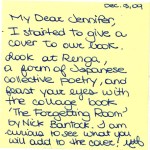 Dec. 13, 09
My Dear Jennifer,
I started to give a
cover to our book.
Look at Renga,
a form of Japanese
collective poetry, and
feast your eyes with
the collage book
'The Forgetting Room'
by Nick Bantock. I am
curious to see what you
will add to the cover!